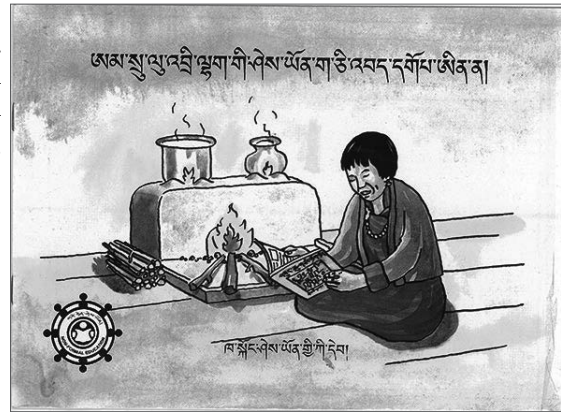 ཨམ་སྲུ་ལུ་འབྲི་ལྷག་གི་ཤེས་ཡོན་ག་ཅི་འབད་དགོཔ་ཨིན་ན།
ཁ་སྐོང་ཤེས་ཡོན་གྱི་ཀི་དེབ།